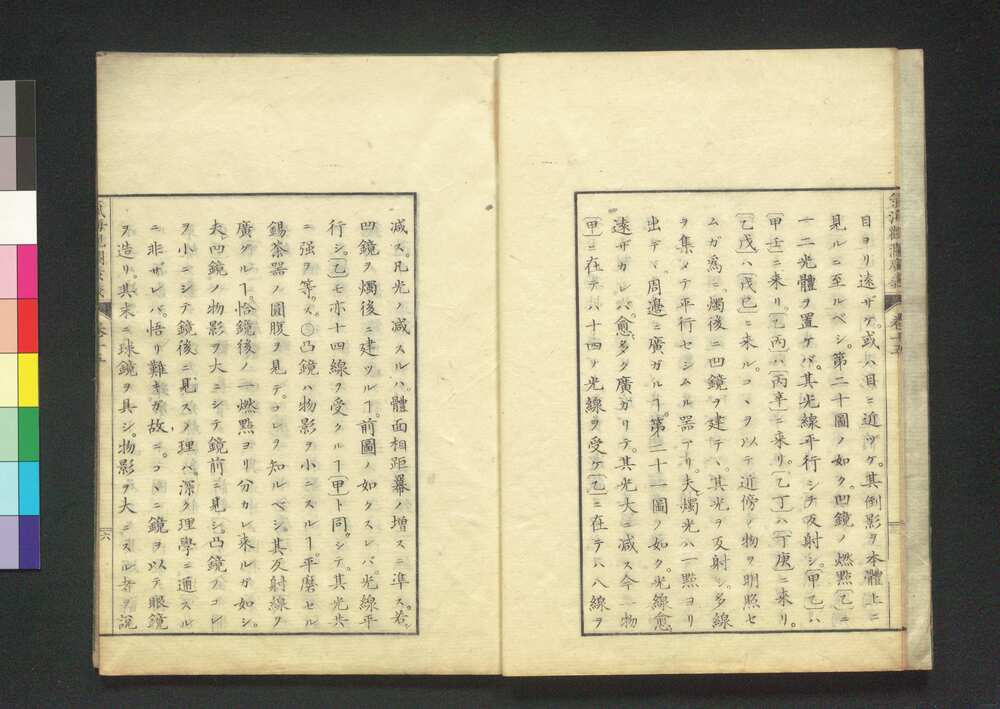 目ヨリ遠ザケ。或ハ目ニ近ヅケ。其倒影ヲ本體上ニ
見ルニ至ルベシ。第二十圖ノ如ク。凹鏡ノ燃㸃〔乙〕ニ
一二光體ヲ置ケバ。其光線平行シテ反射シ。〔甲乙〕ハ
〔甲壬〕ニ来リ。〔乙丙〕ハ〔丙辛〕ニ来リ。〔乙丁〕ハ〔丁庚〕ニ来リ。
〔乙戊〕ハ〔戊已〕ニ来ル。コヽヲ以テ近傍ノ物ヲ明照セ
ムガ為ニ。燭後ニ凹鏡ヲ建テヽ。其光ヲ反射シ。多線
ヲ集メテ平行セシムル器アリ。夫燭光ハ一㸃ヨリ
出デヽ。周邉ニ廣ガルヿ。第二十一圖ノ如ク。光線愈
遠ザカレバ。愈多ク廣ガリテ。其光大ニ减ス。今一物
〔甲〕ニ在テハ十四ノ光線ヲ受ケ。〔乙〕ニ在テハ八線ヲ
减ス。凡光ノ减スルハ。體面相距冪ノ増スニ準ス。若シ
凹鏡ヲ燭後ニ建ツルヿ。前圖ノ如クスレバ。光線平
行シ。〔乙〕モ亦十四線ヲ受クルヿ〔甲〕ト同シ。シテ。其光共
ニ强ヲ等ス。○凸鏡ハ物影ヲ小ニスルヿ。平磨セル
錫茶器ノ圓腹ヲ見テ。コレヲ知ルベシ。其反射線ヲ
廣グルヿ。恰鏡後ノ一燃㸃ヨリ分カレ来ルガ如シ。
夫凹鏡ノ物影ヲ大ニシテ鏡前ニ見シ。凸鏡ノコレ
ヲ小ニシテ鏡後ニ見スノ理ハ。深ク理學ニ通スル
ニ非ザレバ。悟リ難キガ故ニ。コヽニ鏡ヲ以テ眼鏡
ヲ造リ。其末ニ球鏡ヲ具シ。物影ヲ大ニスル者ヲ說
六